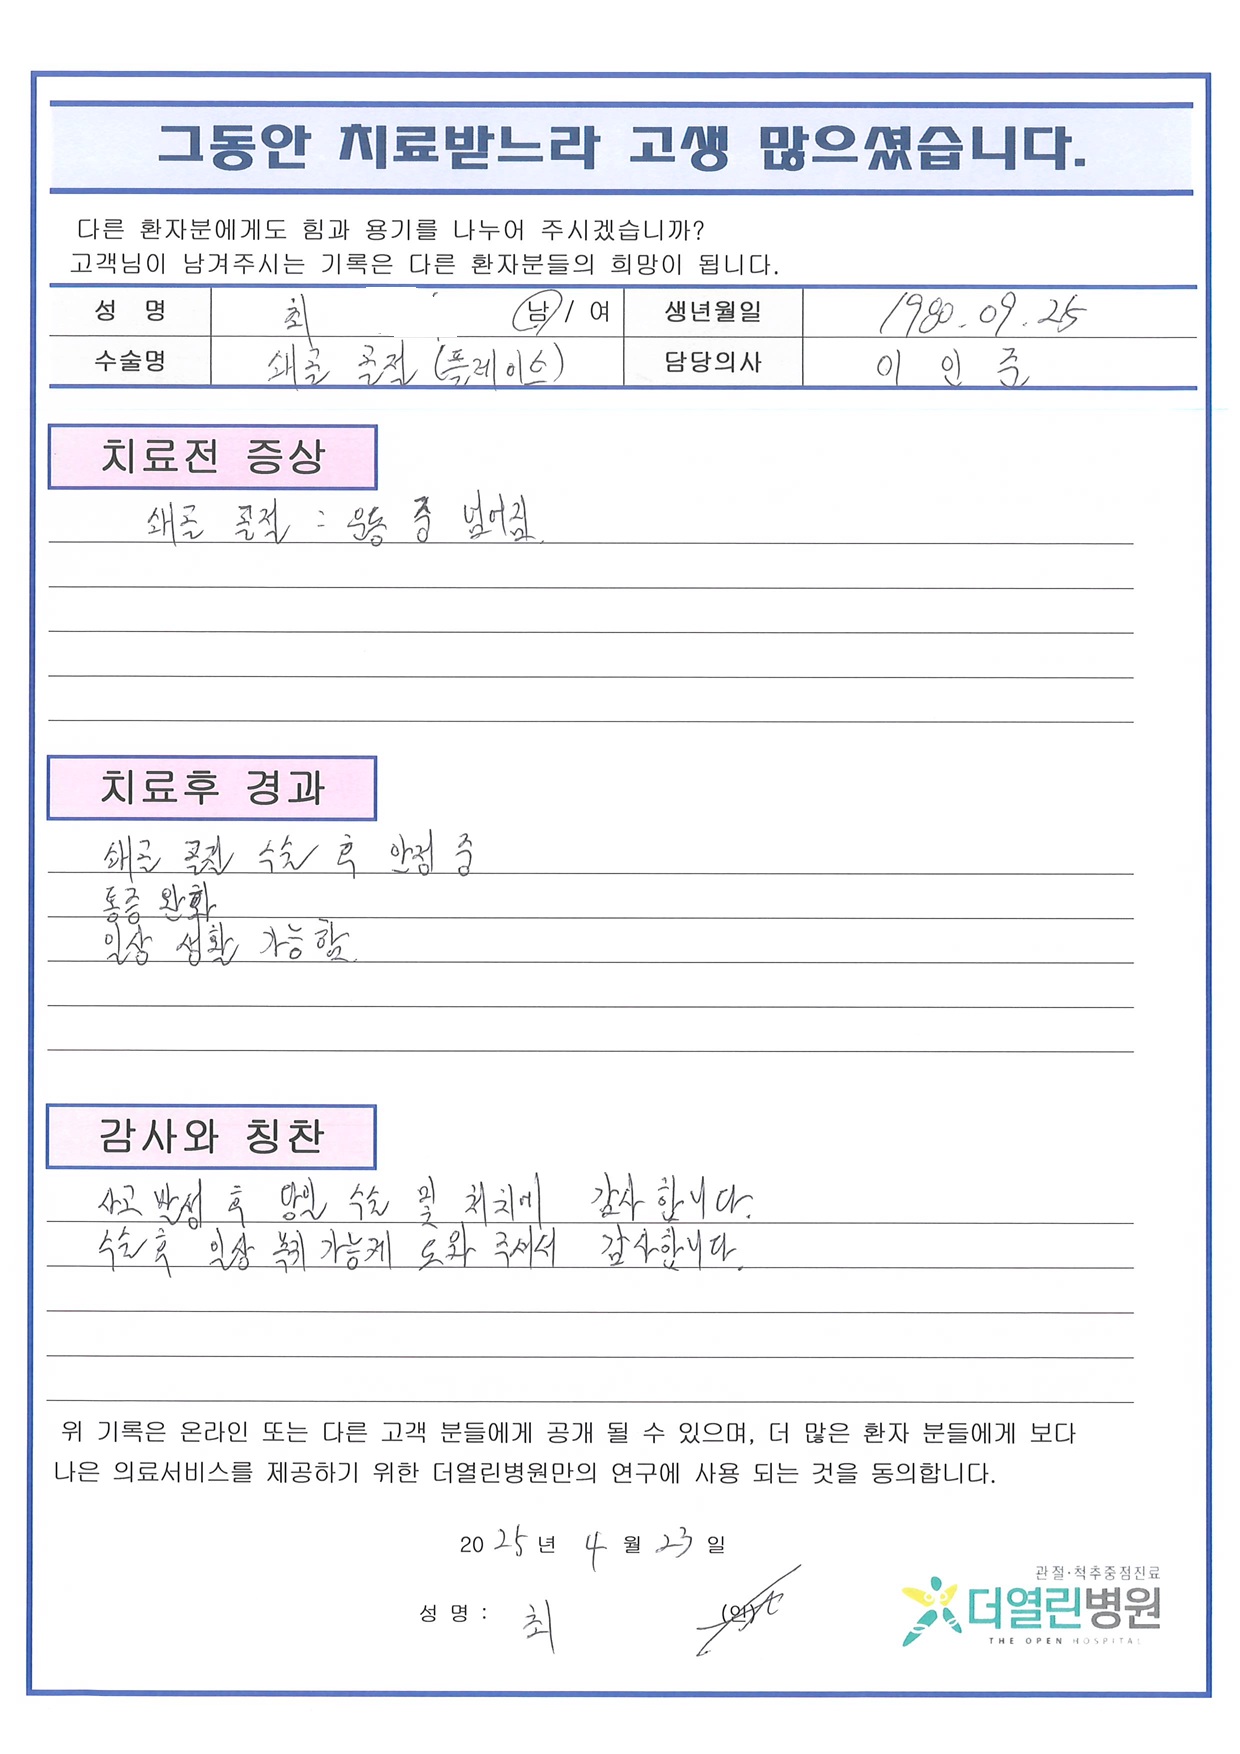 그동안 치료받느라 고생 많으셨습니다.
다른 환자분에게도 힘과 용기를 나누어 주시겠습니까?
고객님이 남겨주시는 기록은 다른 환자분들의 희망이 됩니다.
성 명 최 남 / 여 생년월일 1980.09.25
수술명 쇄골 골절 (플레이스) 담당의사 이 인 준
치료전 증상
쇄골 골절 : 운동 중 넘어짐.
치료후 경과
쇄골 골절 수술 후 안정 중
통증 완화
일상 생활 가능함.
감사와 칭찬
사고 발생 후 당일 수술 및 처치에 감사합니다.
수술 후 일상 복귀 가능케 도와 주셔서 감사합니다.
위 기록은 온라인 또는 다른 고객 분들에게 공개 될 수 있으며, 더 많은 환자 분들에게 보다
나은 의료서비스를 제공하기 위한 더열린병원만의 연구에 사용 되는 것을 동의합니다.
2025년 4월 23일
성 명 : 최 (인)
관절·척추중점진료
더열린병원
THE OPEN HOSPITAL